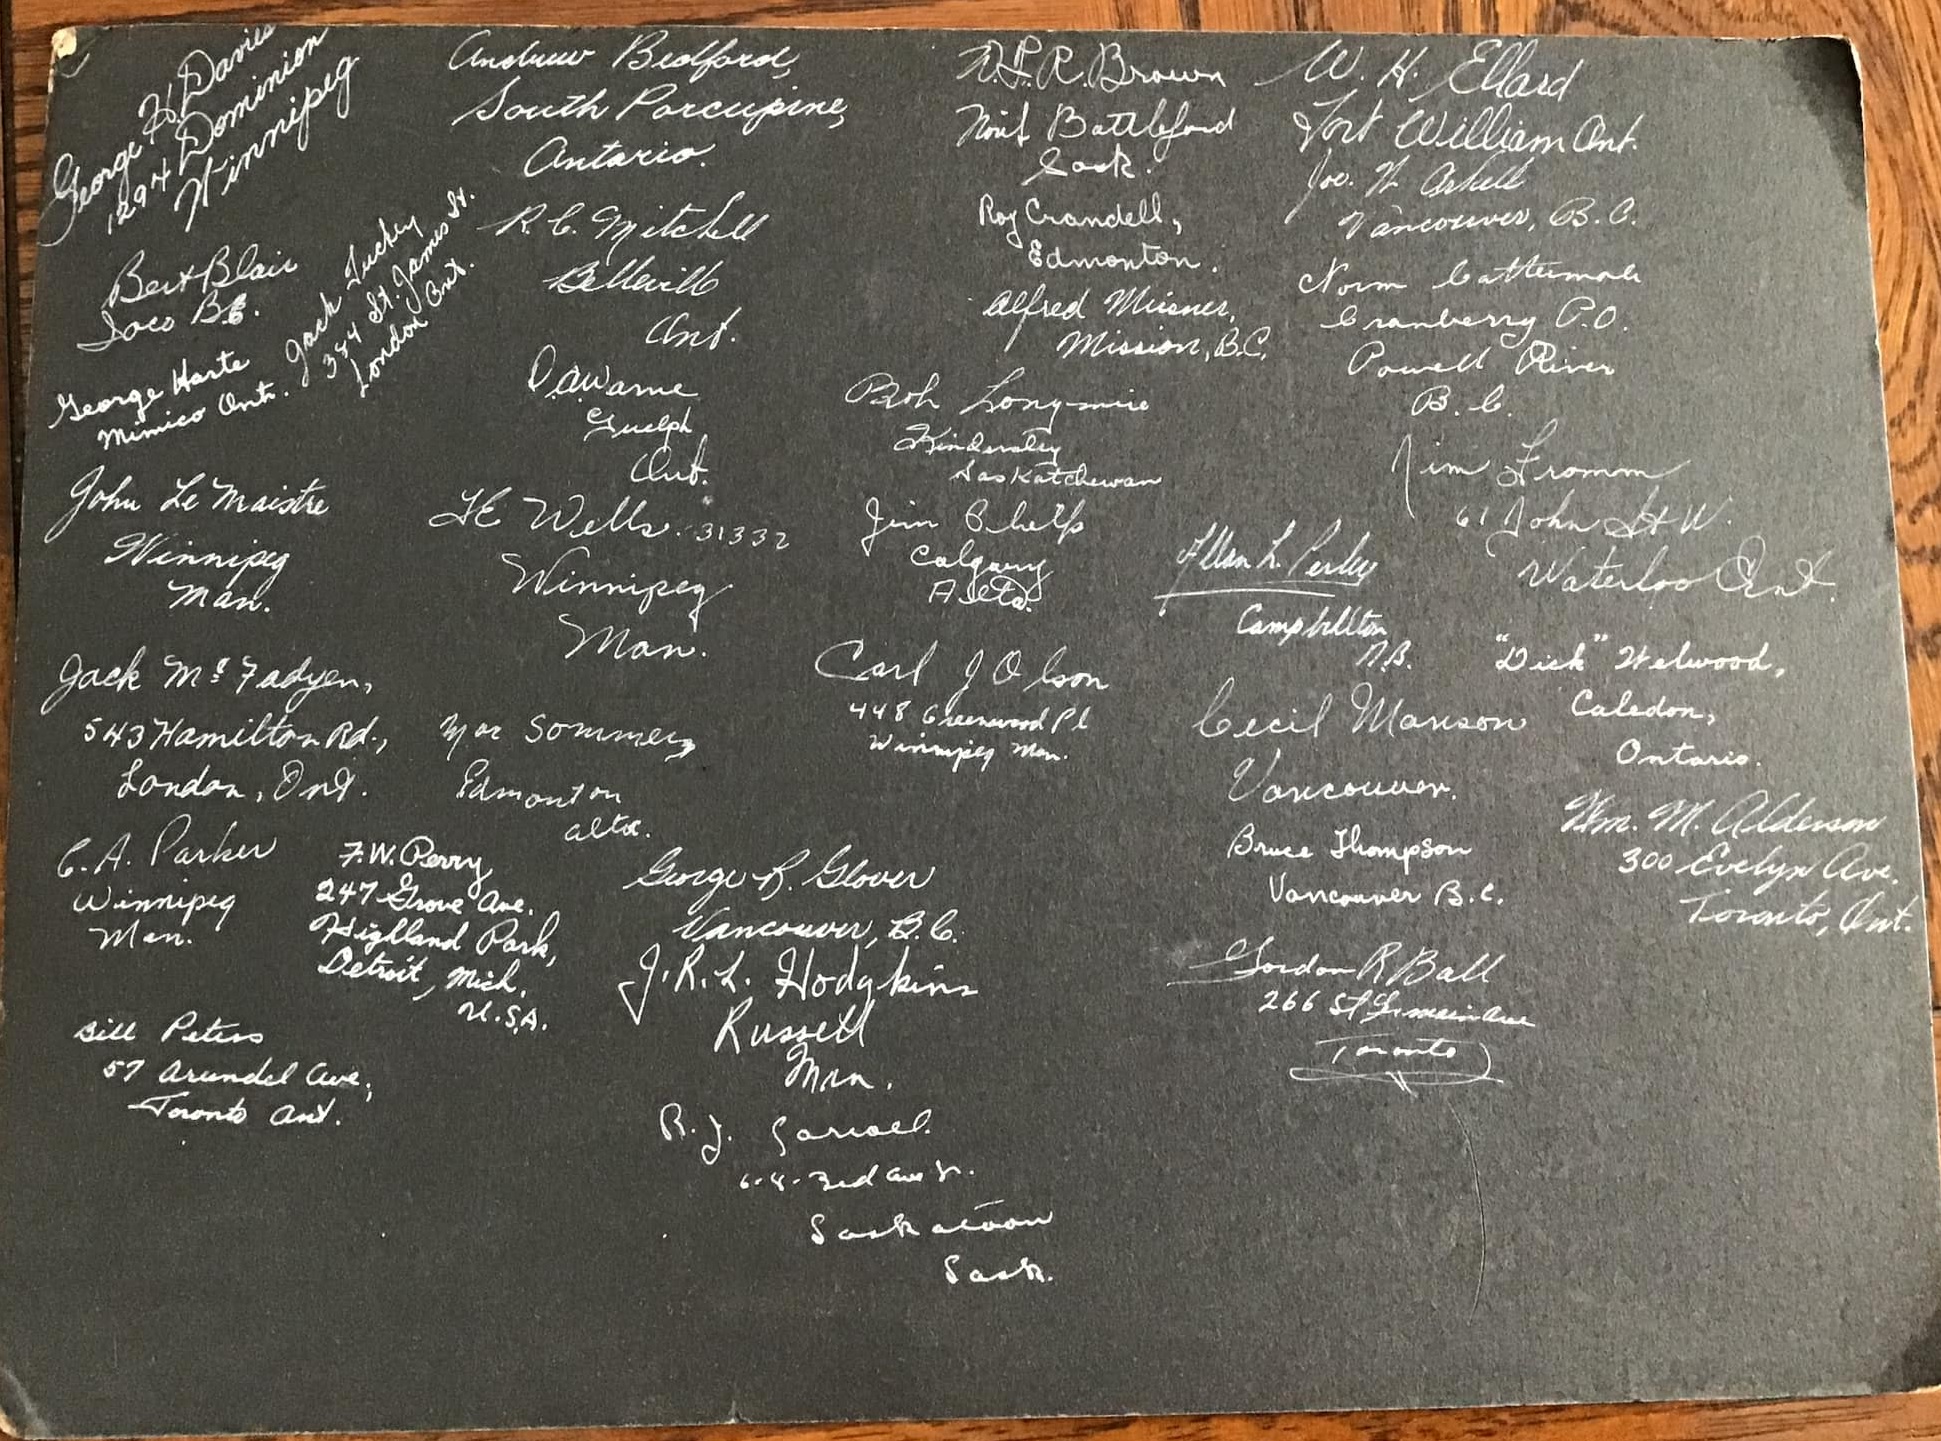 George H. Davies
1294 Dominion
Winnipeg
Bert Blair
B.C.
George Harte
Mimico Ont.
Jack Tuckey
384 St. James St.
London Ont.
John Le Maistre
Winnipeg
Man.
Jack McFadyen,
543 Hamilton Rd.,
London, Ont.
C. A. Parker
Winnipeg
Man.
F. W. Perry
247 Grove Ave.
Highland Park,
Detroit, Mich.
U.S.A.
Bill Peters
57 Arundel Ave,
Toronto Ont.
Andrew Bedford,
South Porcupine,
Ontario.
R. C. Mitchell
Belleville
Ont.
D.A. Warne
Guelph
Ont.
Wells 31332
Winnipeg
Man.
Sommers
Edmonton
alta.
George R. Glover
Vancouver, B.C.
J. R. L. Hodgkins
Russell
Man.
R. J.
3rd ave
Saskatoon
Sask.
R. Brown
Battleford
Sask.
Roy Crandell,
Edmonton.
Alfred Miesner,
Mission, B.C.
Bob Longmire
Kindersley
Saskatchewan
Jim Phelps
Calgary
Alta.
Carl J Olson
448 Greenwood Pl
Winnipeg Man.
W. H. Ellard
Fort William Ont.
Joe. N. Ashell
Vancouver, B.C.
Norm Cattermole
Cranberry P.O.
Powell River
B.C.
Jim Fromm
61 John St W.
Waterloo Ont.
Allan L. Perley
Campbellton
N.B.
"Dick" Welwood,
Caledon,
Ontario.
Cecil Manson
Vancouver.
Bruce Thompson
Vancouver B.C.
Wm. M. Alderson
300 Evelyn Ave.
Toronto, Ont.
Gordon R Ball
266 St Germain Ave
Toronto